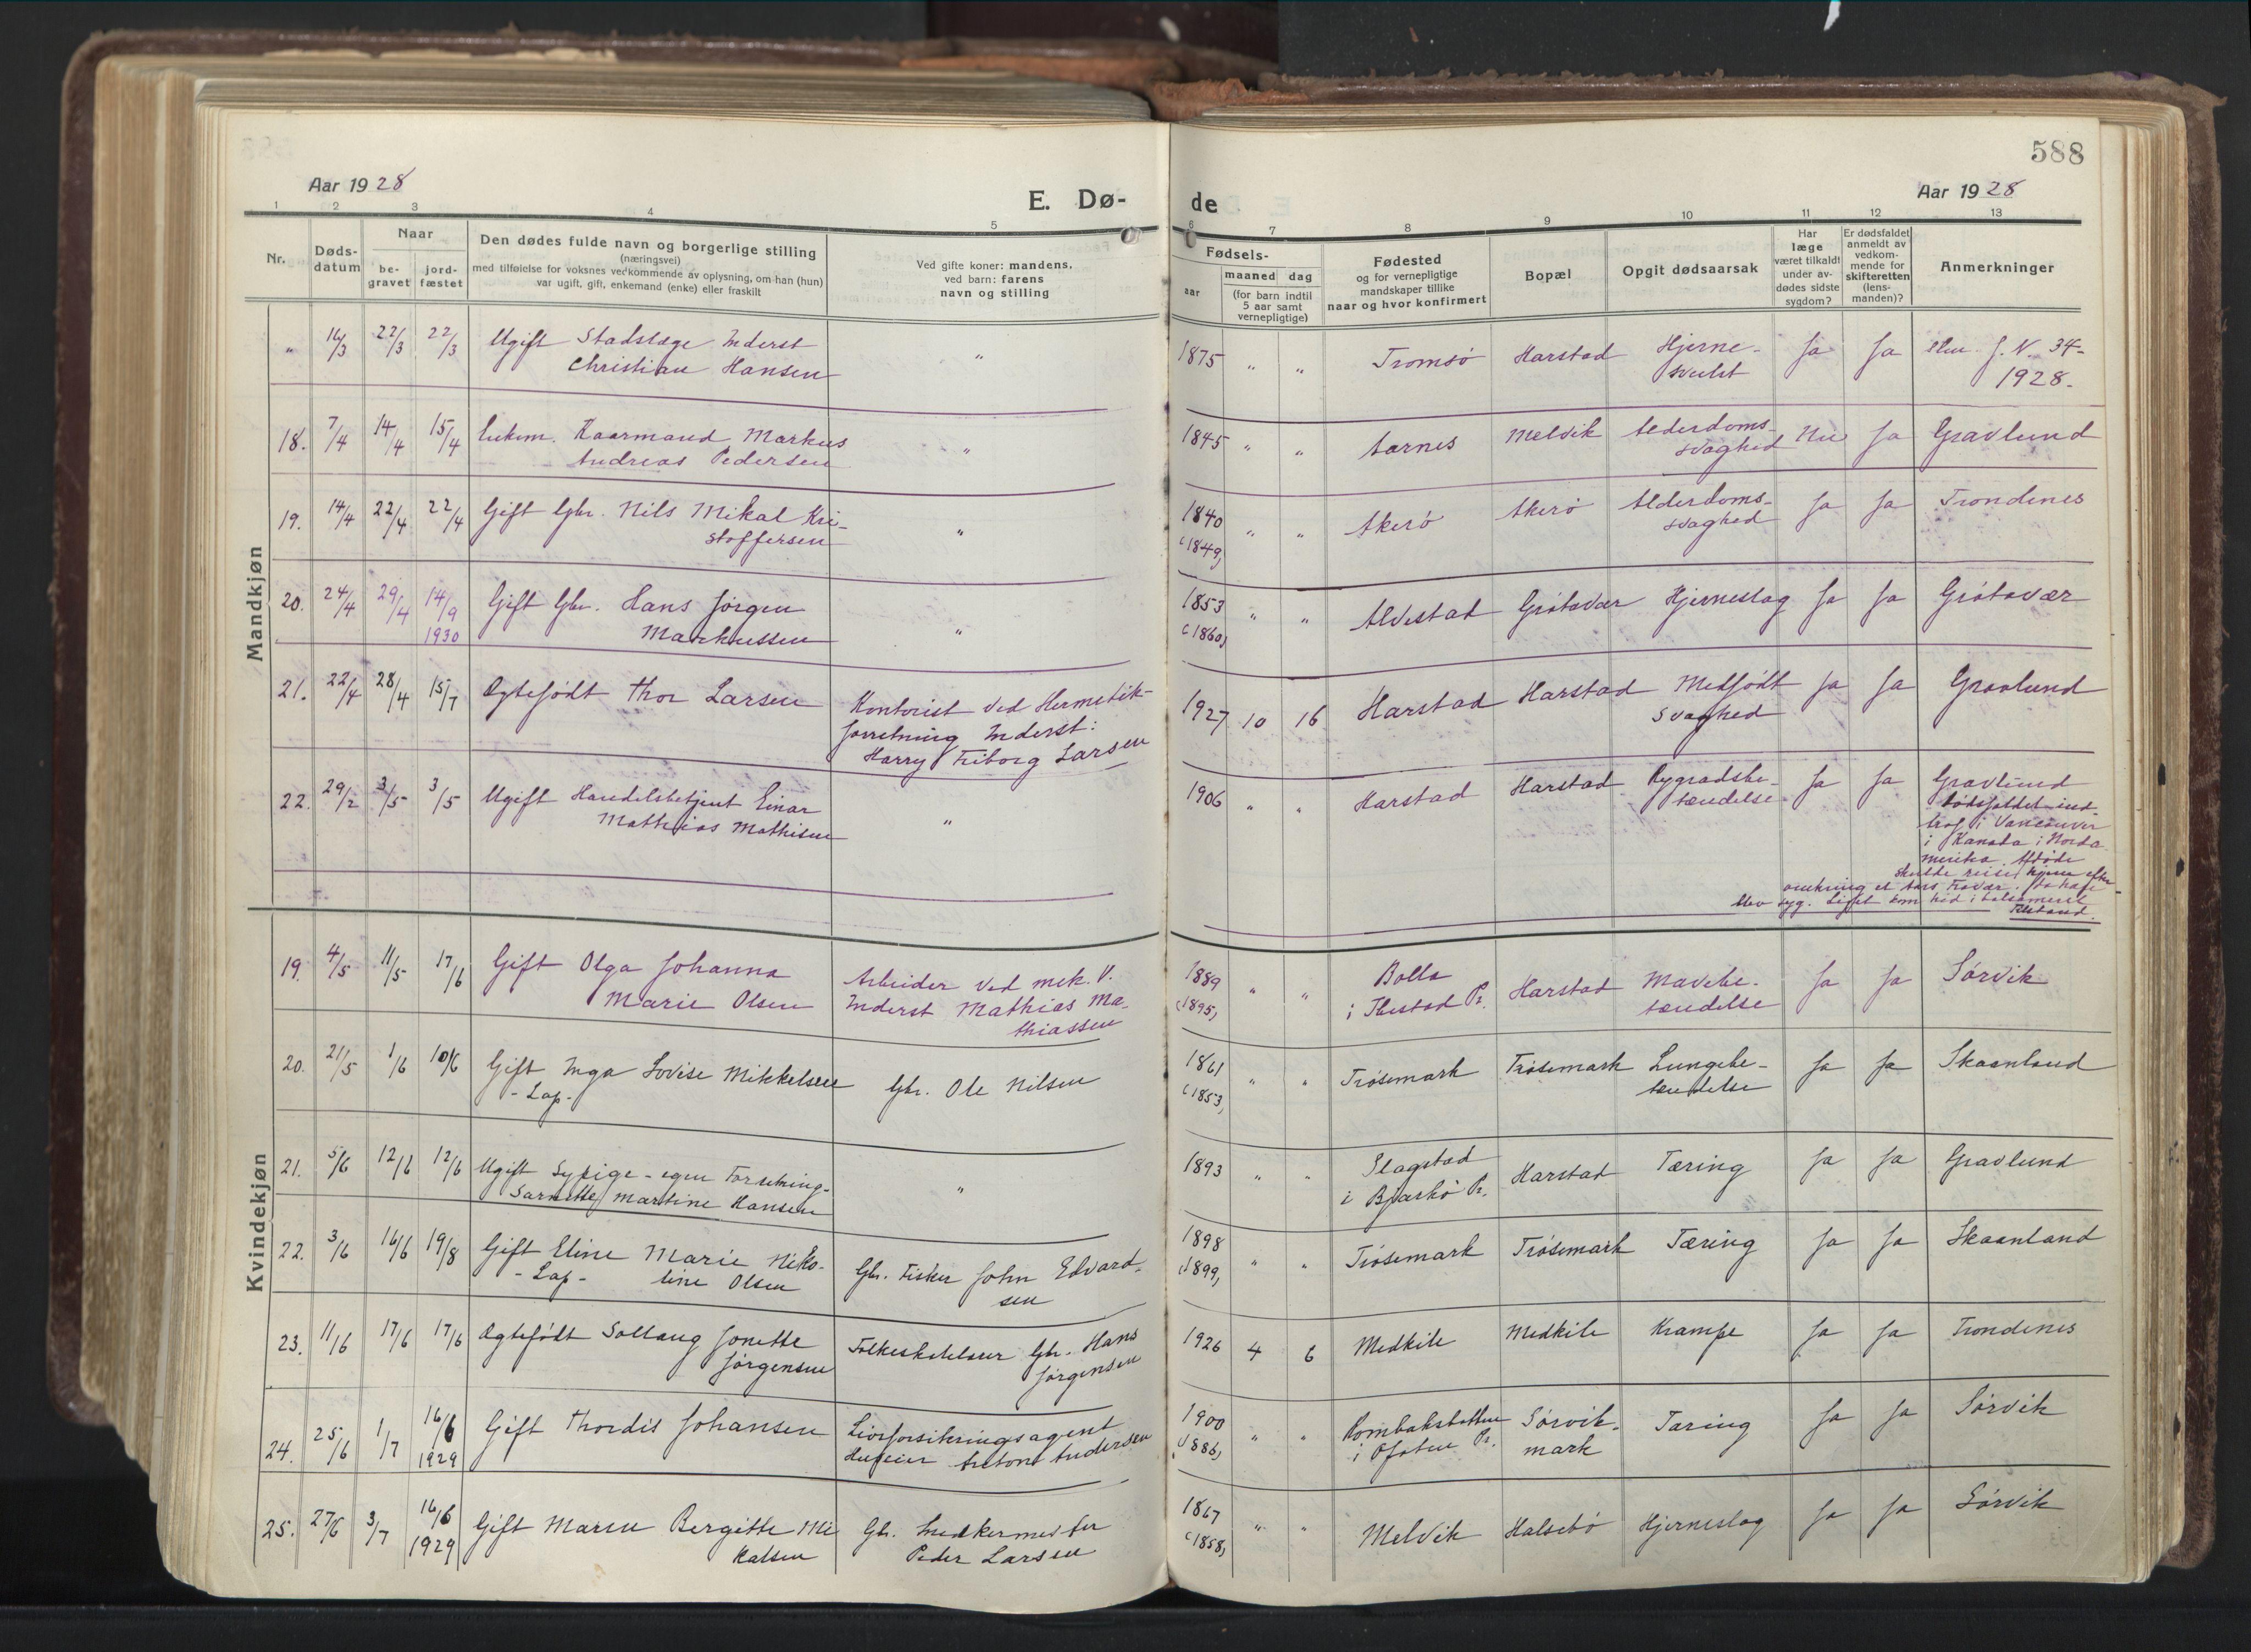 588
Aar 1928
E. Dø-
de
Aar 1928
1 2 3 4 5 6 7 8 9 10 11 12 13
Nr.
Døds-
datum
Naar
be-
gravet
jord-
fæstet
Den dødes fulde navn og borgerlige stilling
(næringsvei)
med tilføielse for voksnes vedkommende av oplysning, om han (hun)
var ugift, gift, enkemand (enke) eller fraskilt
Ved gifte koner: mandens,
ved barn: farens
navn og stilling
Fødsels-
aar
maaned dag
(for barn indtil
5 aar samt
vernepligtige)
Fødested
og for vernepligtige
mandskaper tillike
naar og hvor konfirmert
Bopæl
Opgit dødsaarsak
Har
læge
været tilkaldt
under av-
dødes sidste
sygdom?
Er dødsfaldet
anmeldt av
vedkom-
mende for
skifteretten
(lens-
manden)?
Anmerkninger
Mandkjøn
" 16/3 22/3 22/3 Ugift Stadslæge Inderst
Christian Hansen
" 1875 " " Tromsø Harstad Hjerne-
svulst
Ja Ja J. N. 34-
1928.
18. 7/4 14/4 15/4 Enkem. Kaarmand Markus
Andreas Pedersen
" 1845 " " Aarnes Melvik Alderdoms-
svaghed
Nei Ja Gravlund
19. 14/4 22/4 22/4 Gift Gbr. Nils Mikal Kri-
stoffersen
" 1840
(1849)
" " Akerø Akerø Alderdoms-
svaghed
Ja Ja Trondenes
20. 24/4 29/4 14/9
1930
Gift Gbr. Hans Jørgen
Markussen
" 1853
(1860)
" " Alvestad Grøtavær Hjerneslag Ja Ja Grøtavær
21. 22/4 28/4 15/7 Ægtefødt Thor Larsen
Kontorist ved Hermetik-
forretning Inderst:
Harry Friborg Larsen
1927 10 16 Harstad Harstad Medfødt
svaghed
Ja Ja Gravlund
22. 29/2 3/5 3/5 Ugift Handelsbetjent Einar
Mathias Mathisen
" 1906 " " Harstad Harstad Rygradsbe-
tændelse
Ja Ja Gravlund
Dødsfaldet ind-
traf i Vancouver
i Kanada i Norda-
merika. Afdøde
skulde reise hjem efter
omkring et aars fravær.
blev syg. Liget kom hid i balsameret
Tilstand.
Kvindekjøn
19. 4/5 11/5 17/6 Gift Olga Johanna
Marie Olsen
Arbeider ved mek. V.
Inderst Mathias Ma-
thiassen
1889
(1895)
" " Bolla
i Ibestad Pr.
Harstad Mavebe-
tændelse
Ja Ja Sørvik
20. 21/5 1/6 10/6 Gift Inga Lovise Mikkelsen
- Lap -
Gbr. Ole Nilsen
1861
(1853)
" " Trøsemark Trøsemark Lungebe-
tændelse
Ja Ja Skaanland
21. 5/6 12/6 12/6 Ugift Sypige - egen Forretning -
Martine Hansen
" 1893 " " Slagstad
i Bjarkø Pr.
Harstad Tæring Ja Ja Gravlund
22. 3/6 16/6 19/8 Gift Eline Marie Niko-
- Lap - line Olsen
Gbr. Fisker John Edvard-
sen
1898
(1899)
" " Trøsemark Trøsemark Tæring Ja Ja Skaanland
23. 11/6 17/6 17/6 Ægtefødt Sollaug Jonette
Jørgensen
Folkeskolelærer Gbr. Hans
Jørgensen
1926 4 6 Medkile Medkile Krampe Ja Ja Trondenes
24. 25/6 1/7 16/6
1929
Gift Thordis Johansen
Livsforsikringsagent
Huseier Anton Andersen
1900
(1886)
" " Rombaksbotten
i Ofoten Pr.
Sørvik-
mark
Tæring Ja Ja Sørvik
25. 27/6 3/7 16/6
1929
Gift Maren Bergitte Mi
kalsen
Gbr. Snedkermester
Peder Larsen
1867
(1858)
" " Melvik Halsebø Hjerneslag Ja Ja Sørvik